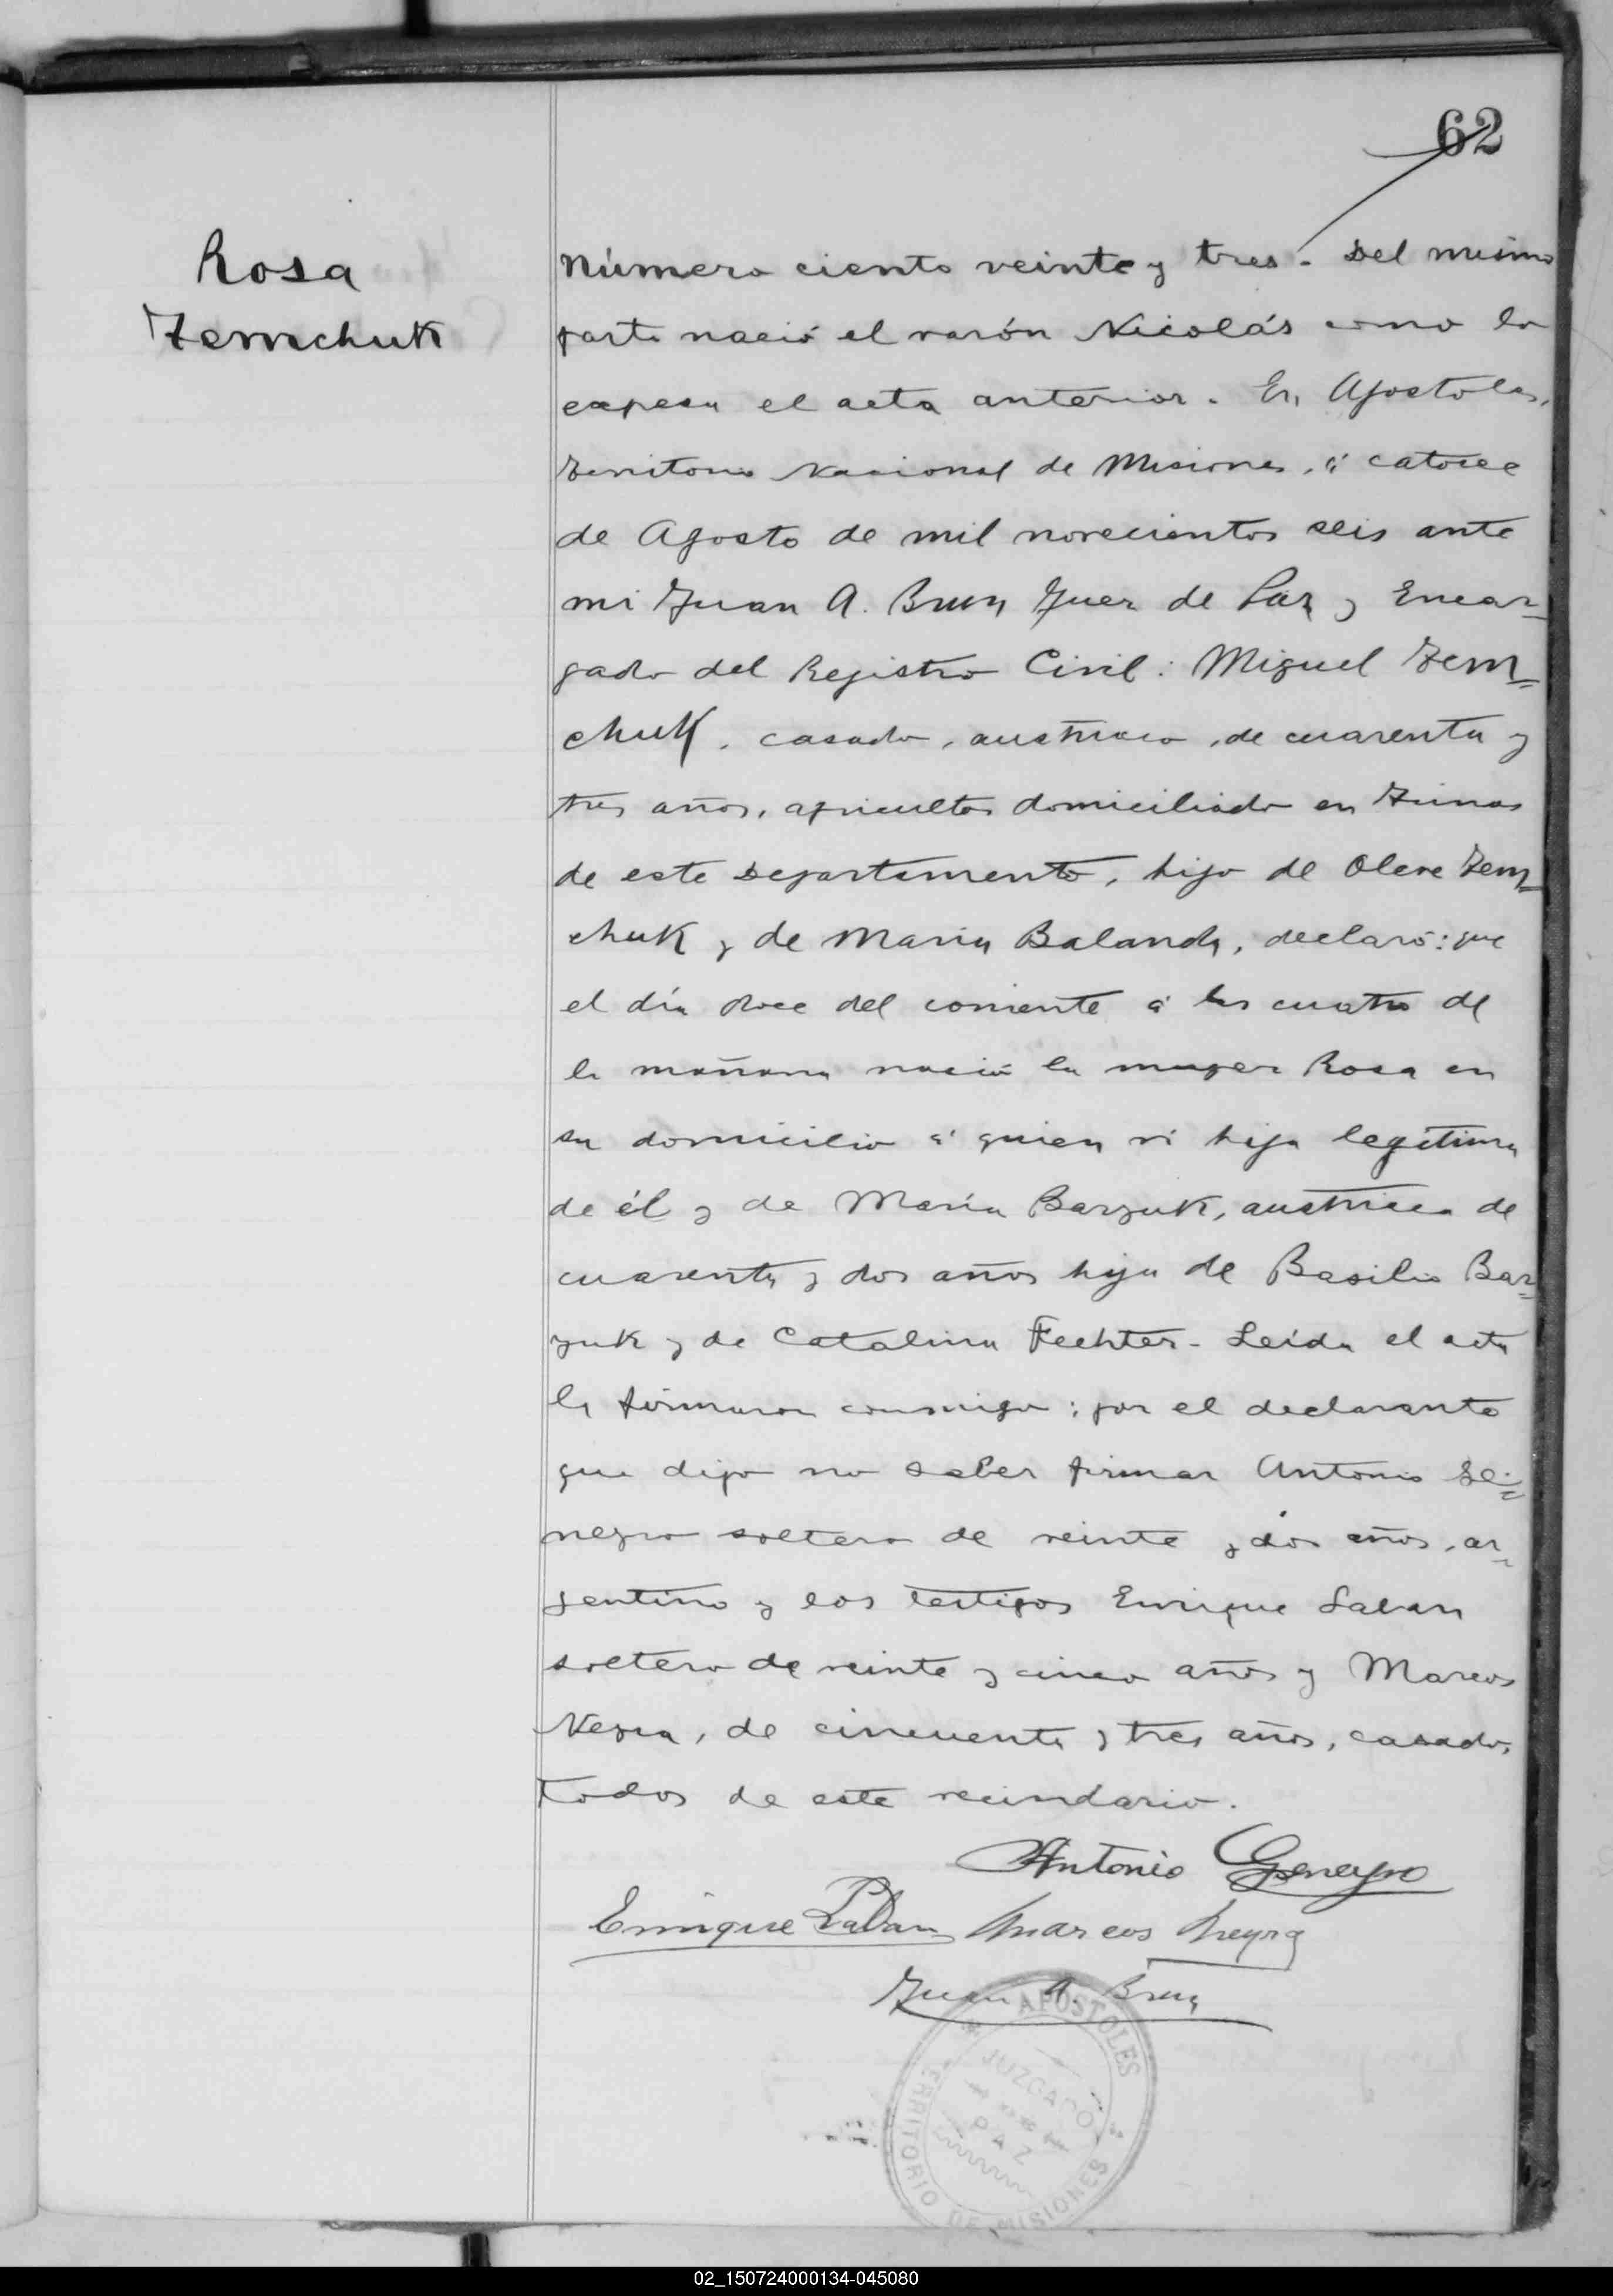 62
Rosa
Zemchuk
Número ciento veinte y tres. Del mismo
parto nació el varón Nicolás como lo
expesa el acta anterior. En Apostoles,
Territorio Nacional de Misiones, á catorce
de Agosto de mil novecientos seis ante
mi Juan A. Brun Juez de Paz y Encar=
gado del Registro Civil: Miguel Zem=
chuk, casado, austriaco, de cuarenta y
tres años, agricultor domiciliado en
de este Departamento, hijo de Olexe Zem=
chuk y de Maria Balanda, declaró: que
el día doce del corriente á las cuatro de
la mañana nació la muger Rosa en
su domicilio á quien vi hija legítima
de él y de María Barzuk, austriaca de
cuarenta y dos años hija de Basilio Bar=
zuk y de Catalina Fechter. Leída el acta
la firmaron conmigo: por el declarante
que dijo no saber firmar Antonio Ge=
neyro soltero de veinte y dos años, ar=
gentino y los testigos Enrique Laban
soltero de veinte y cinco años y Marcos
Neyra, de cincuenta y tres años, casado,
todos de este vecindario.
Antonio Geneyro
Enrique Laban Marcos Neyra
Juan A. Brun
APOSTOLES
JUZGADO
PAZ
TERRITORIO DE MISIONES
02_150724000134-045080